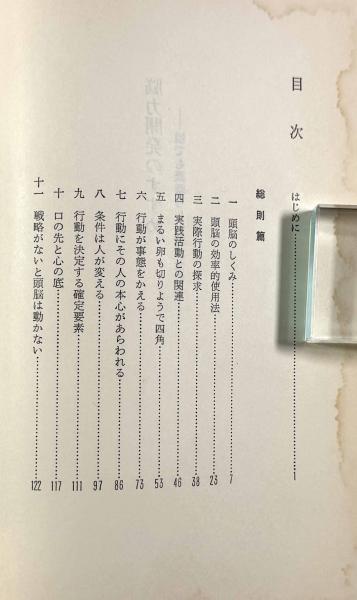 目次
はじめに……………1
総則篇
一 頭脳のしくみ……………7
二 頭脳の効率的使用法……………23
三 実際行動の探求……………38
四 実践活動との関連……………46
五 まるい卵も切りようで四角……………53
六 行動が事態をかえる……………73
七 行動にその人の本心があらわれる……………86
八 条件は人が変える……………97
九 行動を決定する確定要素……………111
十 口の先と心の底……………117
十一 戦略がないと頭脳は動かない……………122